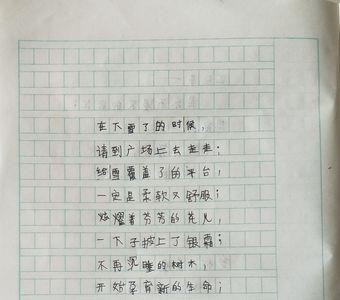 在下雪了的时候，
请到广场上去走走；
给雪覆盖了的平台，
一定是柔软又舒服；
炫耀着芬芳的花儿，
一下子披上了银霜；
不再沉睡的树木，
开始孕育新的生命；